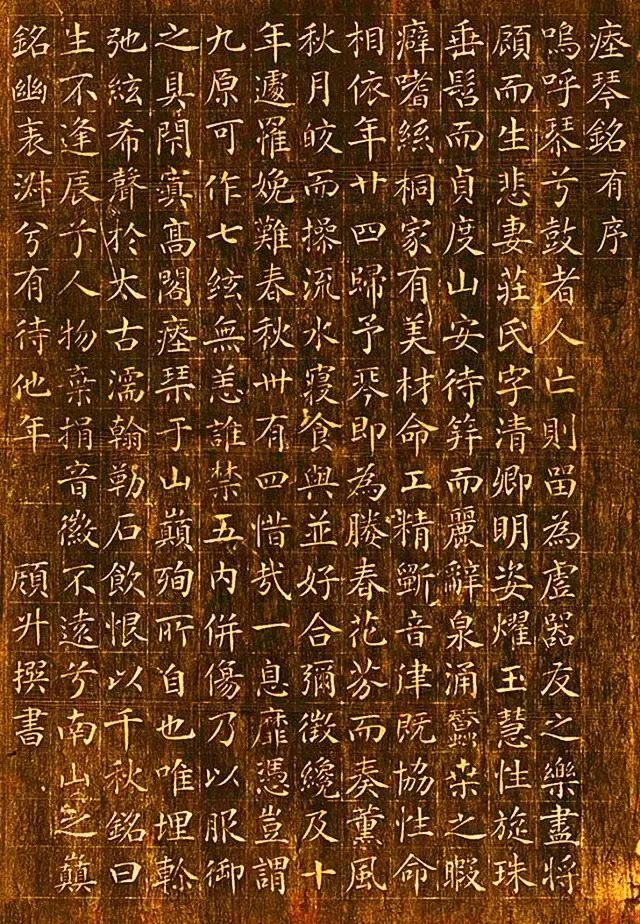 瘞琴銘 有序
嗚呼琴兮鼓者人亡則畱為虛器友之樂盡將
顧而生悲妻莊氏字清卿明姿燿玉慧性旋珠
垂髫而貞度山安待笄而麗辭泉涌蠶桒之暇
癖嗜絲桐家有美材命工精斵音律既協性命
相依年廿四歸予琴即為勝春花芬而奏薰風
秋月皎而操流水寢食與並好合彌徵纔及十
年遽罹娩難春秋卅有四惜哉一息靡憑豈謂
九原可作七絃無恙誰禁五內併傷乃以服御
之具閉寘高閣瘞琹于山巔殉所自也唯埋軫
弛絃希聲於太古濡翰勒石飲恨以千秋銘曰
生不逢辰兮人物棄捐音徽不遠兮南山之巔
銘幽衷泐兮有待他年 顧升撰書